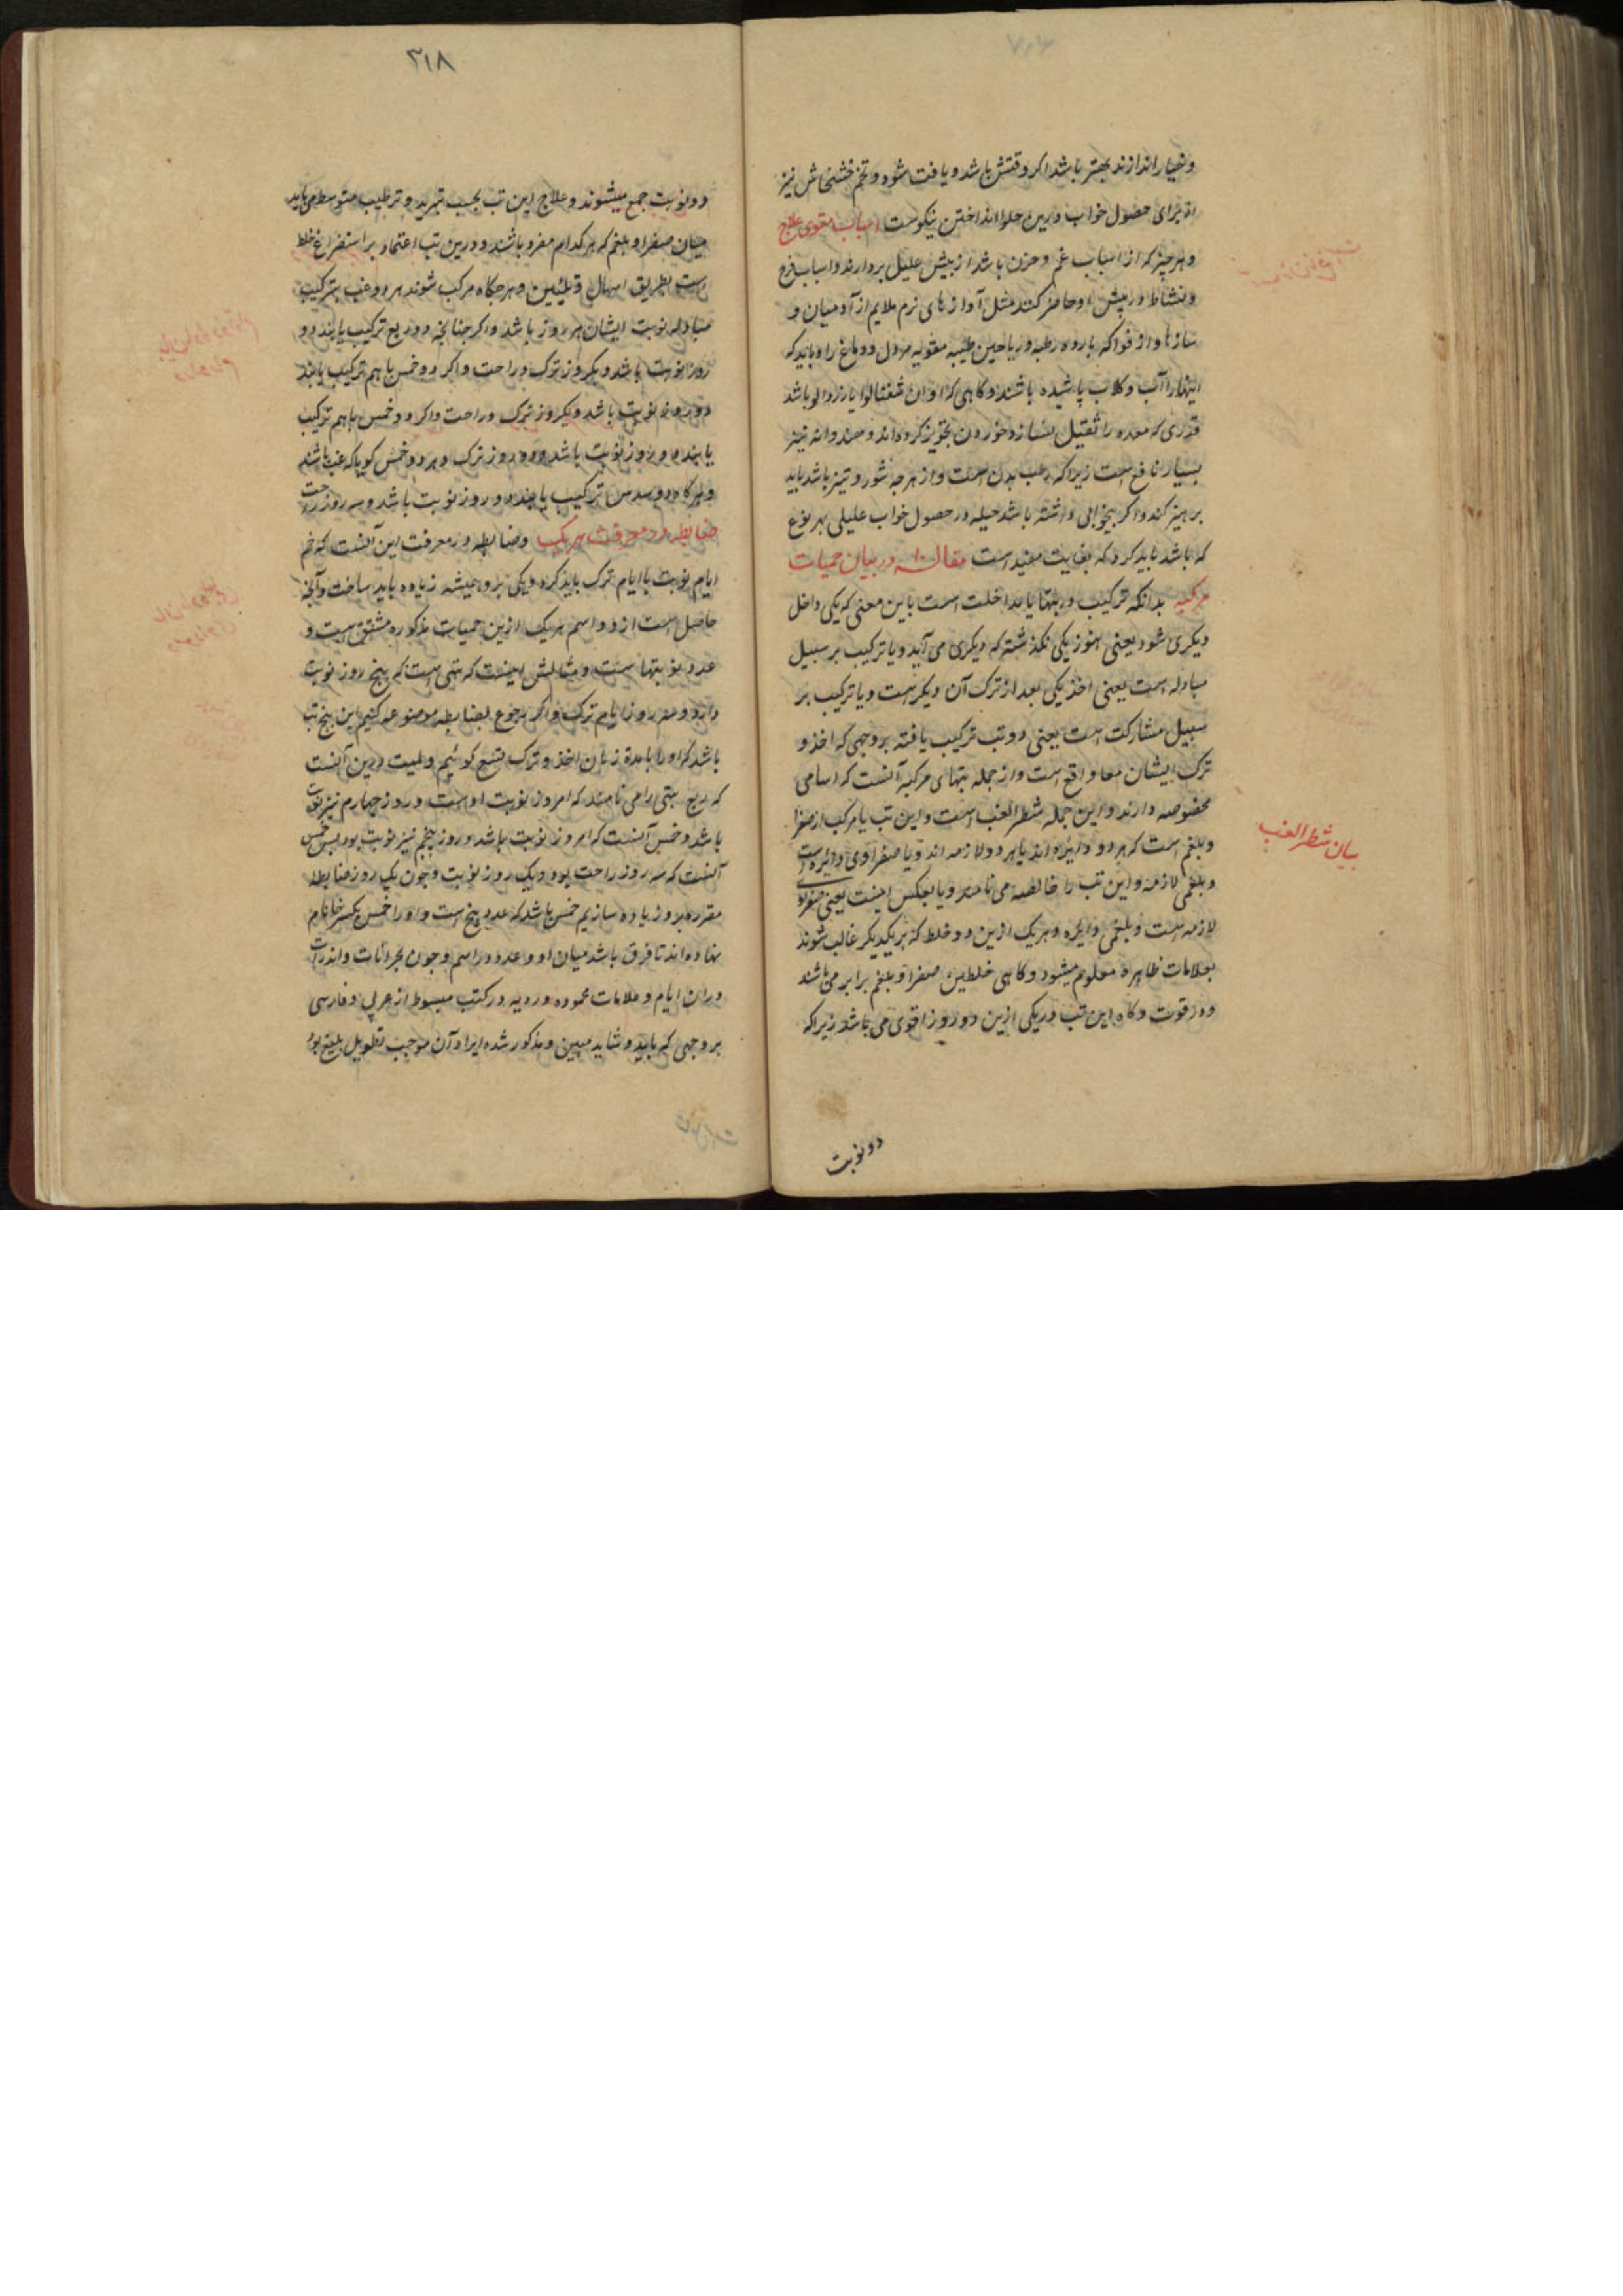 و خیار اندازند بهتر باشد اکر وقتش باشد و یافت شود و تخم خشخاش نیز
از برای حصول خواب درین حلوا انداختن نیکوست اسباب مقوی علاج
و هر چیز که از اسباب غم و حزن باشد از پیش علیل بردارند و اسباب فرح
و نشاط در پیش او حاضر کنند مثل آوازهای نرم ملایم از آدمیان و
سازها و از فواکه بارده رطبه و ریاحین طیبه مقویه مر دل و دماغ را و باید که
اینها را آب و کلاب پاشیده باشند و کاهی که اوان شفتالو یا زردالو باشد
قدری که معده را ثقیل نسازد خوردن تجویز کرده‌اند و هندوانه نیز
بسیار نافع است زیرا که بدن است و از هر چه شور و تیز باشد باید
پرهیز کند و اکر بیخوابی داشته باشد حیله در حصول خواب علیل بهر نوع
که باشد باید کرد که بغایت مفید است مقاله ۱۰ در بیان حمیات
مرکبه بدانکه ترکیب در تبها یا مداخلت است باین معنی که یکی داخل
دیکری شود یعنی هنوز یکی نکذشته که دیکری می آید و یا ترکیب بر سبیل
مبادله است یعنی اخذ یکی بعد از ترک آن دیکر است و یا ترکیب بر
سبیل مشارکت است یعنی دو تب ترکیب یافته بر وجهی که اخذ و
ترک ایشان معا واقع است و از جمله تبهای مرکبه آنست که اسامی
مخصوصه دارند و این جمله شطر الغب است و این تب یا مرکب از صفرا
و بلغم است که هر دو دایره اند یا هر دو لازمه اند و یا صفراوی دایره است
و بلغمی لازمه و این تب را خالصه می نامند و یا بعکس اینست یعنی صفراوی
لازمه است و بلغمی دایره و هر یک ازین دو خلط که بر یکدیکر غالب شوند
بعلامات ظاهره معلوم میشود و کاهی خلطین صفرا و بلغم برابر می باشند
در قوت و کاه این تب در یکی ازین دو روز اقوی می باشد زیرا که
بیان شطر الغب
دو نوبت
۲۱۸
دو نوبت جمع میشوند و علاج این تب بحسب تبرید و ترطیب متوسط می باید
میان صفرا و بلغم که هر کدام مفرد باشند و درین تب اعتماد بر استفراغ خلط
است بطریق اسهال و هر کاه مرکب شوند هر دو غب بترکیب
مبادله نوبت ایشان هر روز باشد و اکر چنانچه دو ربع ترکیب یابند دو
روز نوبت باشد و یکروز ترک و راحت و اکر دو خمس باهم ترکیب یابند
دو روز نوبت باشد و یکروز ترک و راحت و اکر دو خمس باهم ترکیب
یابند دو روز نوبت باشد و دو روز ترک و هر دو خمس کویا که غب باشند
و هر کاه دو سدس ترکیب یابند دو روز نوبت باشد و سه روز راحت
ضابطه در معرفت هر یک و ضابطه در معرفت این آنست که ضم
ایام نوبت با ایام ترک باید کرد و یکی برو همیشه زیاده باید ساخت و آنچه
حاصل است ازو اسم هر یک ازین حمیات مذکوره مشتق است و
عدد نوبتها است و مثالش اینست که تبی است که پنج روز نوبت
دارد و روز ایام ترک و اکر رجوع بضابطه موضوعه کنیم این پنج تب
باشد که او را با مدة زمان اخذ و ترک تسع کوئیم و لمیت درین آنست
که ربع تبی را می نامند که امروز نوبت اوست و روز چهارم نیز نوبت
باشد و خمس آنست که امروز نوبت باشد و روز پنجم نیز نوبت بود پس خمس
آنست که سه روز راحت بود و یک روز نوبت و چون یک روز ضابطه
مقرره برو زیاده سازیم خمس باشد که عدد پنج است و او را خمس بکسر خا نام
نهاده اند تا فرق باشد میان او و عدد در اسم و چون بحرانات و انذرات
دران ایام و علامات محموده و ردیه در کتب مبسوط از عربی و فارسی
بر وجهی که باید و شاید مبین و مذکور شده ایراد آن موجب تطویل بلیغ بود